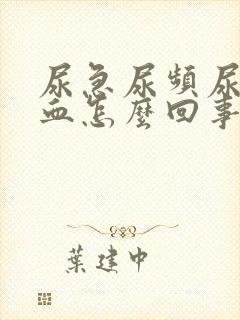 尿急尿頻尿
血怎麼回事
葉建中